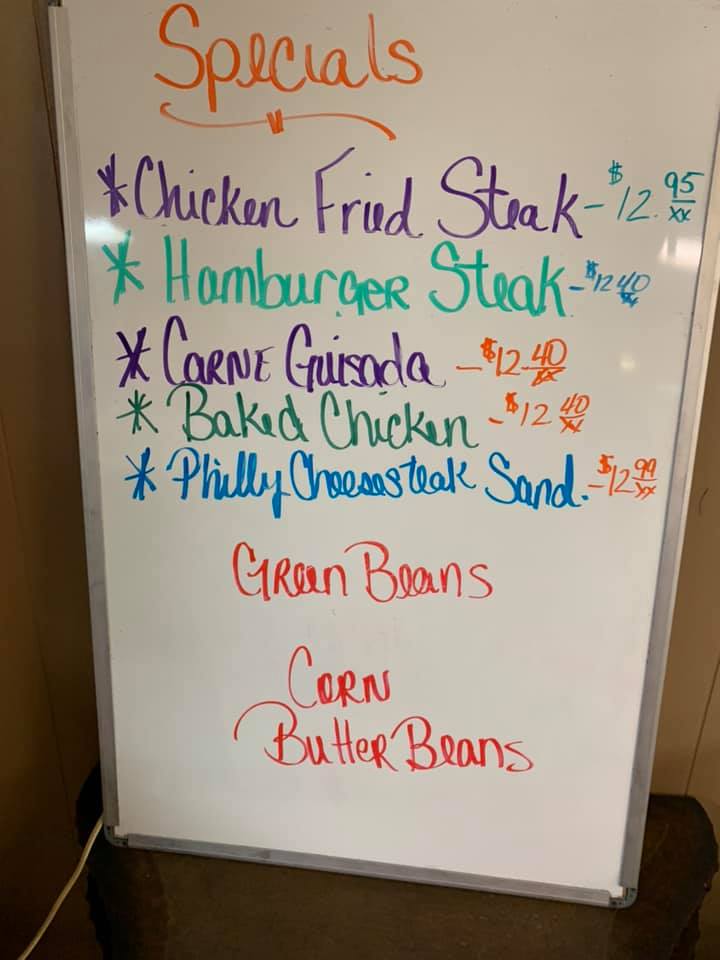 Specials
* Chicken Fried Steak - $12.95/xx
* Hamburger Steak - $12 40/xx
* Carne Guisada - $12.40/xx
* Baked Chicken - $12 40/xx
* Philly Cheesesteak Sand. - $12 99/xx
Green Beans
Corn
Butter Beans